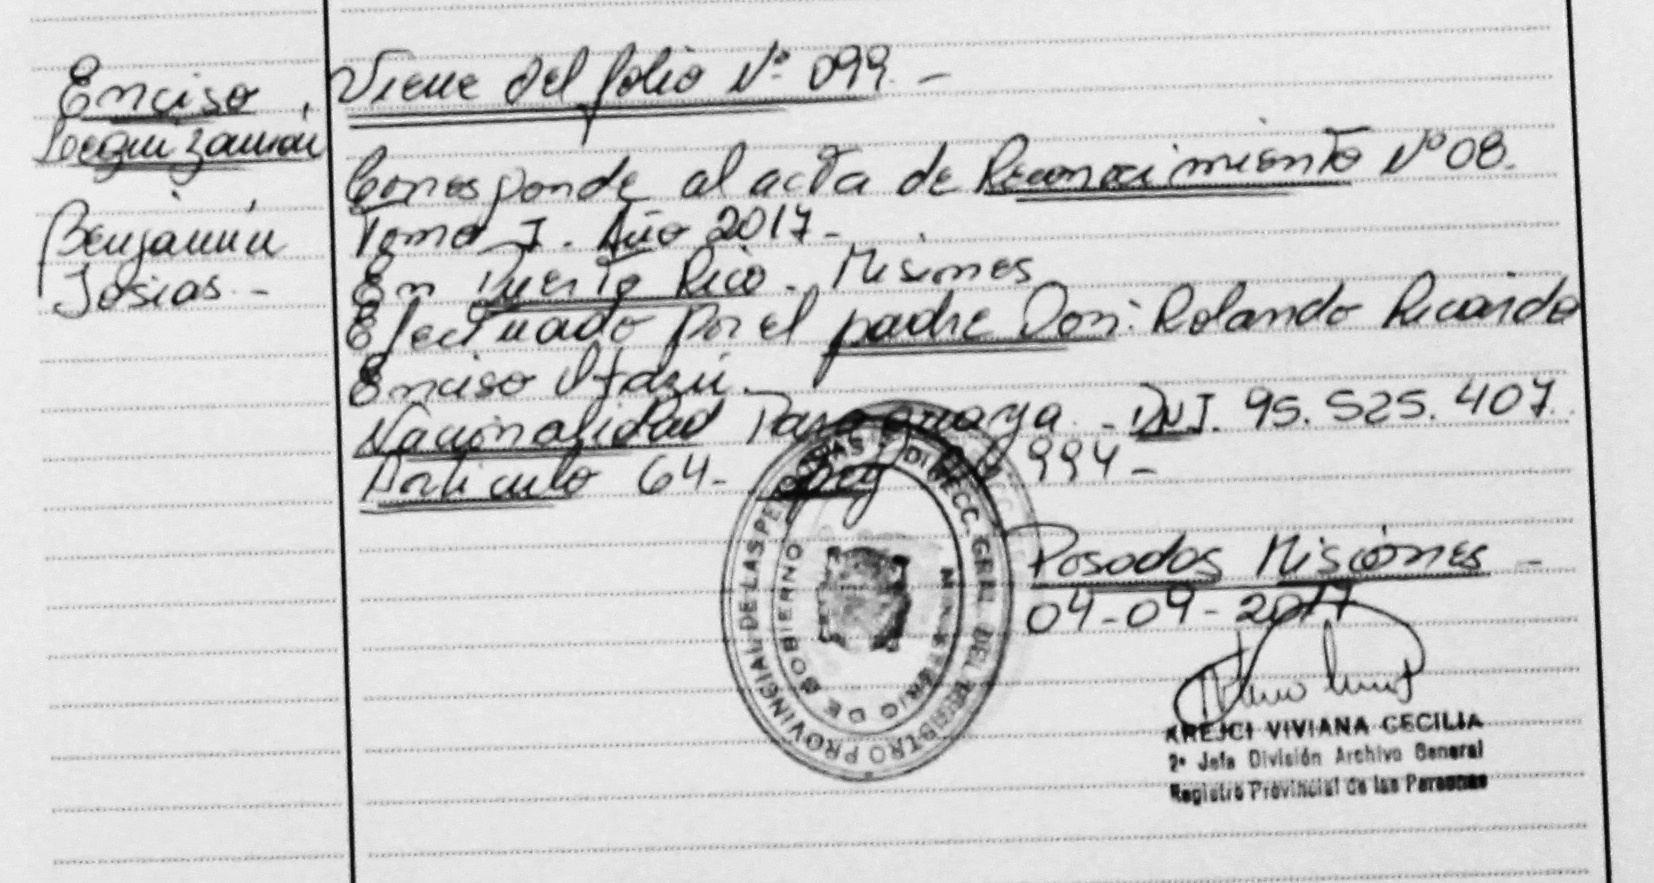 Enciso,
Leguizamón
Benjamín
Josías -
Viene del folio Nº 099. -
Corresponde al acta de Reconocimiento Nº 08.
Tomo I. Año 2017-
En Puerto Rico - Misiones
Efectuado por el padre Don: Rolando Ricardo
Enciso Otazú. -
Nacionalidad Paraguaya - DNI. 95.525.407.
Artículo 64- 994-
Posadas Misiones -
04-09-2017
KREJCI VIVIANA CECILIA
2ª Jefa División Archivo General
Registro Provincial de las Personas
DIRECC. GRAL. DEL REGISTRO PROVINCIAL DE LAS PERSONAS
MINISTERIO DE GOBIERNO